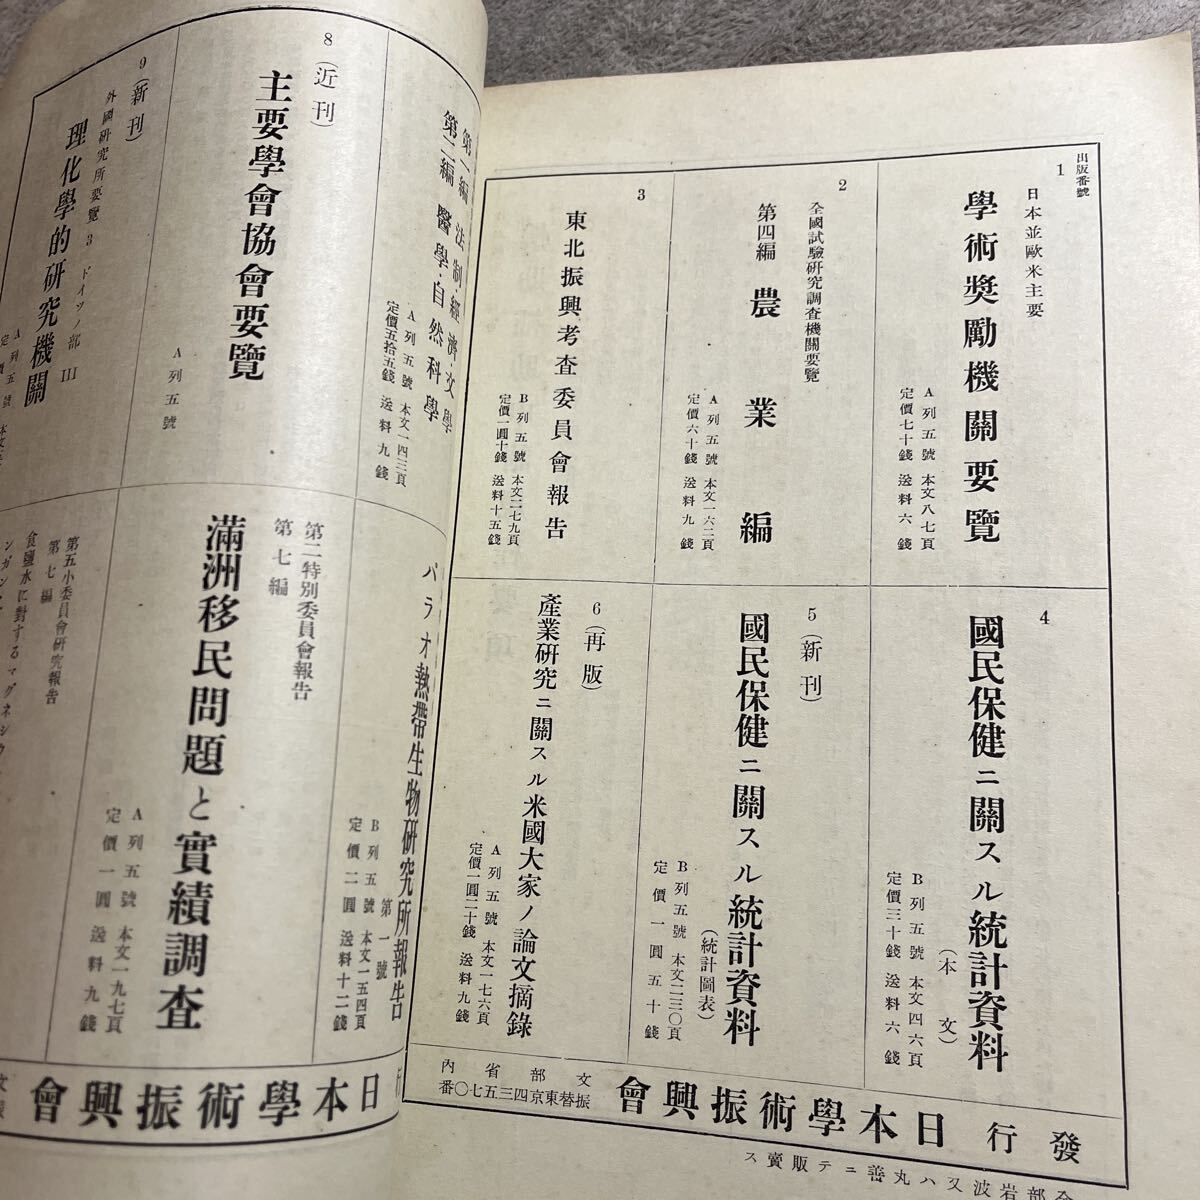 出版番號
1
日本並歐米主要
學術奬勵機關要覽
A列五號 本文八七頁
定價七十錢 送料六錢
2
全國試驗研究調査機關要覽
第四編 農業編
A列五號 本文一六二頁
定價六十錢 送料九錢
3
東北振興考査委員會報告
B列五號 本文二七九頁
定價一圓十錢 送料十五錢
4
國民保健ニ關スル統計資料
（本文）
B列五號 本文四六頁
定價三十錢 送料六錢
5（新刊）
國民保健ニ關スル統計資料
（統計圖表）
B列五號 本文二三〇頁
定價一圓五十錢
6（再版）
產業硏究ニ關スル米國大家ノ論文摘錄
A列五號 本文一七六頁
定價一圓二十錢 送料九錢
發行 日本學術振興會
文部省內
振替東京四三五七〇番
部岩波又ハ丸善ニテ販賣ス
第一編 法制・經濟・文學
第二編 醫學・自然科學
A列五號 本文一四三頁
定價五拾五錢 送料九錢
8（近刊）
主要學會協會要覽
A列五號
9（新刊）
外國硏究所要覽3 ドイツノ部 III
理化學的硏究機關
A列五號 本文
パラオ熱帶生物硏究所報告
第一號
B列五號 本文一五四頁
定價二圓 送料十二錢
第二特別委員會報告
第七編
滿洲移民問題と實績調査
A列五號 本文一九七頁
定價一圓 送料九錢
第五小委員會硏究報告
第七編
食鹽水に對するマグネシウ
ンガン
行 日本學術振興會